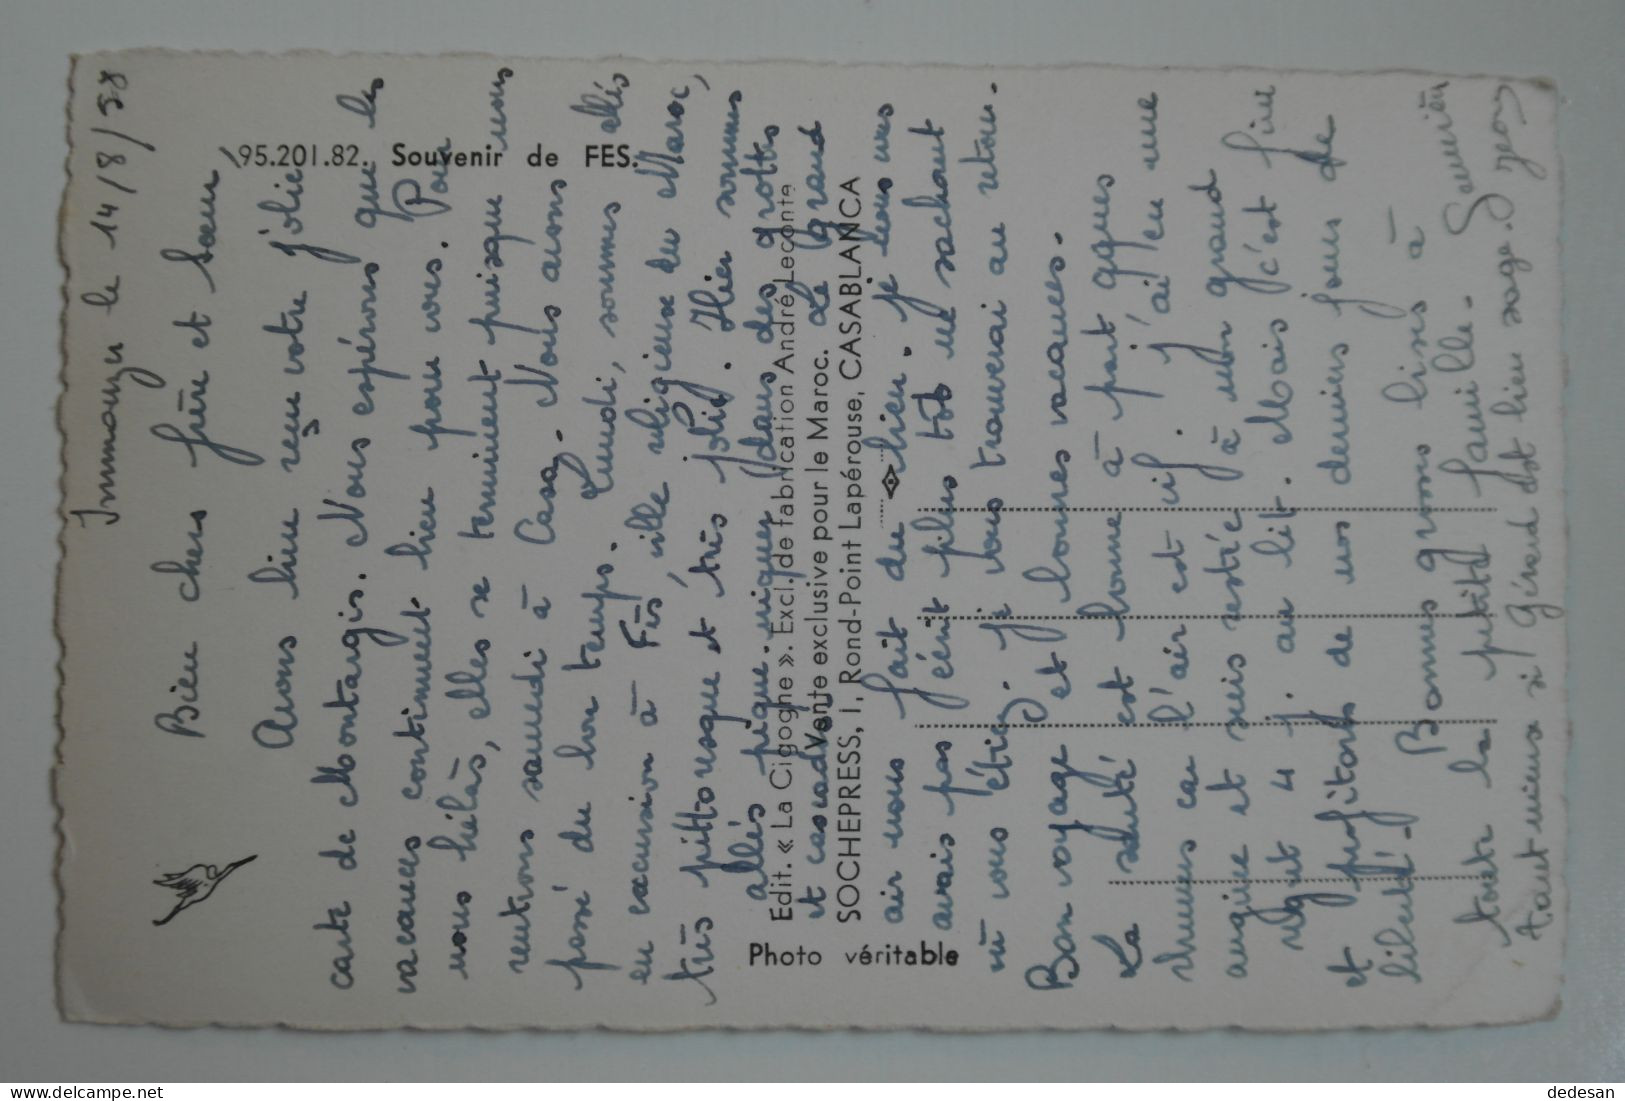 Immouzer le 14/8/58
Bien chers frère et sœur,
Avons bien reçu votre jolie
carte de Montargis. Nous espérons que les
vacances continuent bien pour vous. Pour
nous hélàs, elles se terminent puisque nous
rentrons samedi à Casa. Nous avons
passé du bon temps. Lundi, sommes allés
en excursion à Fès, ville religieuse du Maroc,
très pittoresque et très jolie. Hier sommes
allés pique-niquer dans des grottes
et cascades. Le grand
air nous fait du bien. Je ne vous
avais pas écrit plus tôt ne sachant
où vous étiez. Je vous trouverai au retour.
Bon voyage et bonnes vacances.
La santé est bonne à part qques
rhumes car l'air est vif. J'ai eu une
angine et suis restée à mon grand
regret 4 j. au lit. Mais c'est fini
et profitons de nos derniers jours de
liberté. Bonnes grosses bises à
toute la petite famille.
Tant mieux si Gérard est bien sage. Jean
95.201.82. Souvenir de FES.
Edit. « La Cigogne ». Excl. de fabrication André Leconte
Vente exclusive pour le Maroc.
SOCHEPRESS, 1, Rond-Point Lapérouse, CASABLANCA
Photo véritable
delcampe.net
dedesan